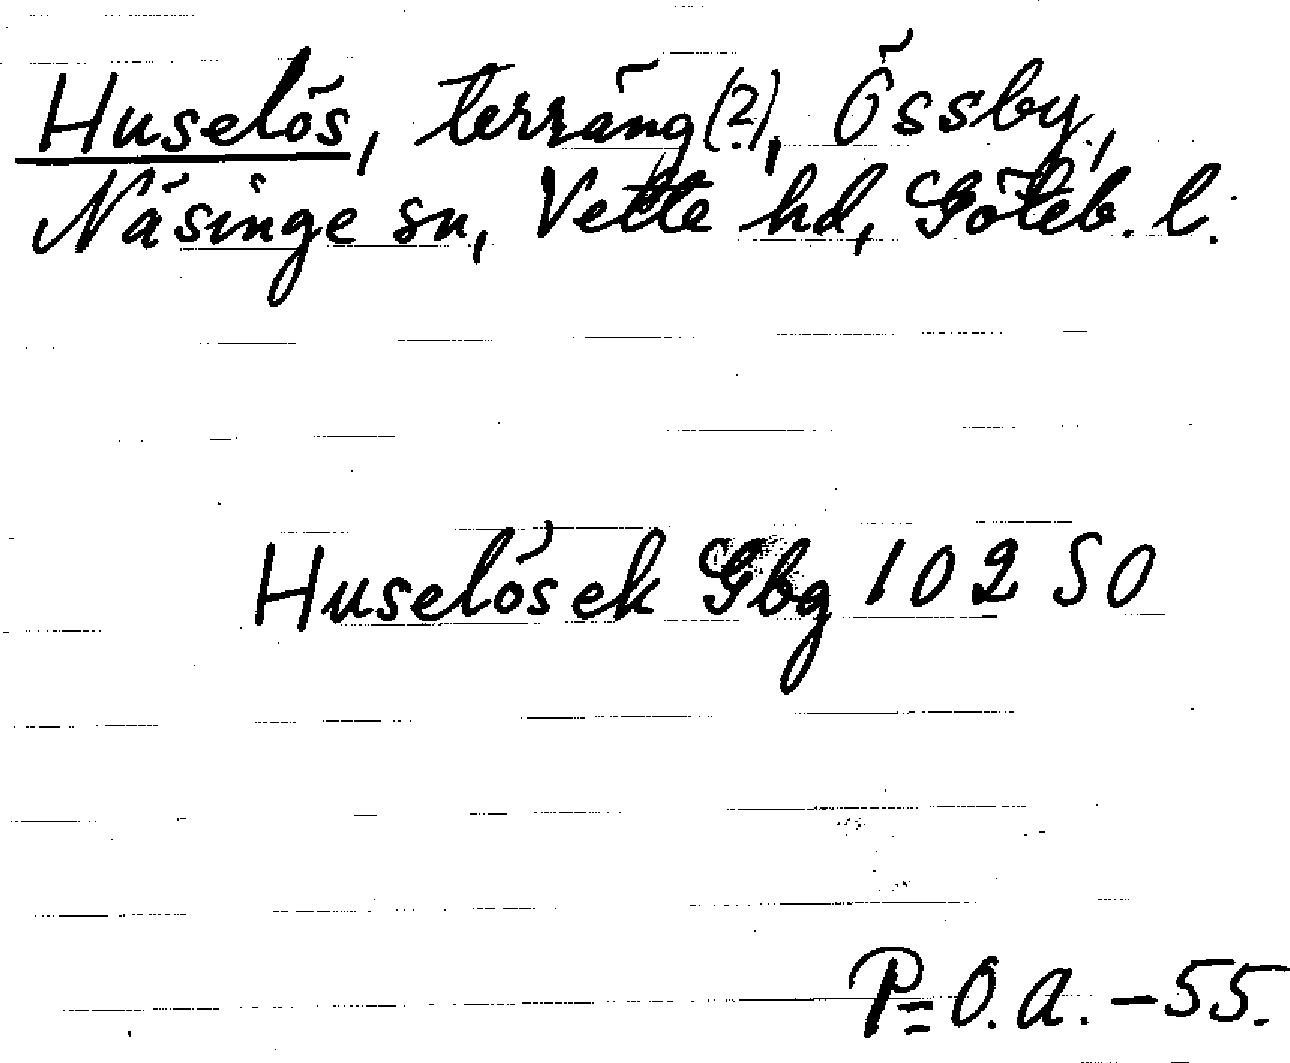 Huselös, terräng(?), Össby,
Näsinge sn, Vette hd, Göteb. l.
Huselösek Gbg 102 50
P=O.A. -55.